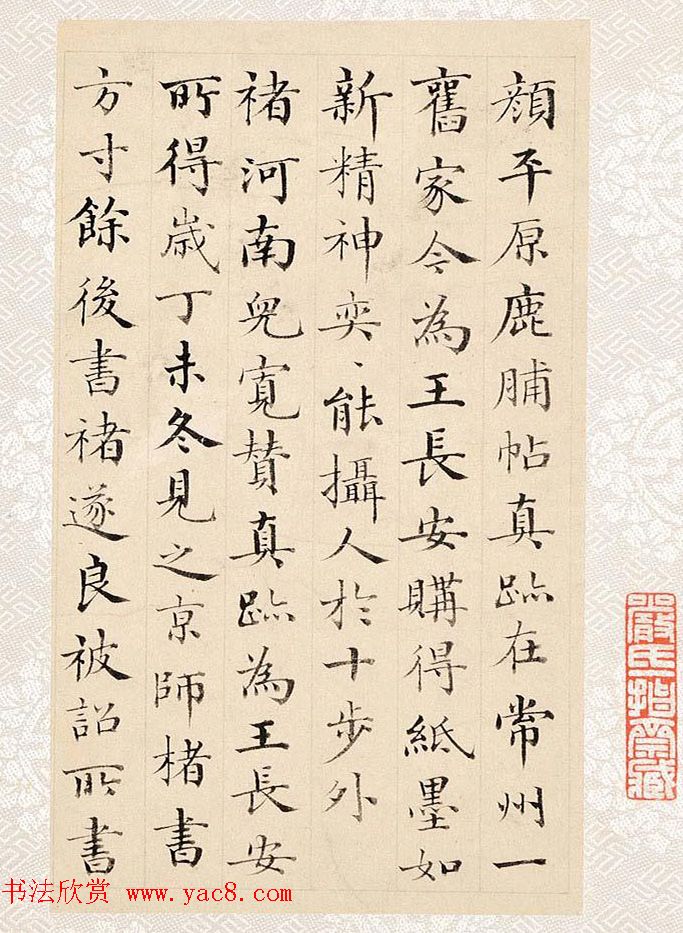 顏平原鹿脯帖真跡在常州一
舊家今為王長安購得紙墨如
新精神奕、能攝人於十步外
褚河南兒寬贊真跡為王長安
所得歲丁未冬見之京師楮書
方寸餘後書褚遂良被詔所書
嚴氏
藏
书法欣赏 www.yac8.com